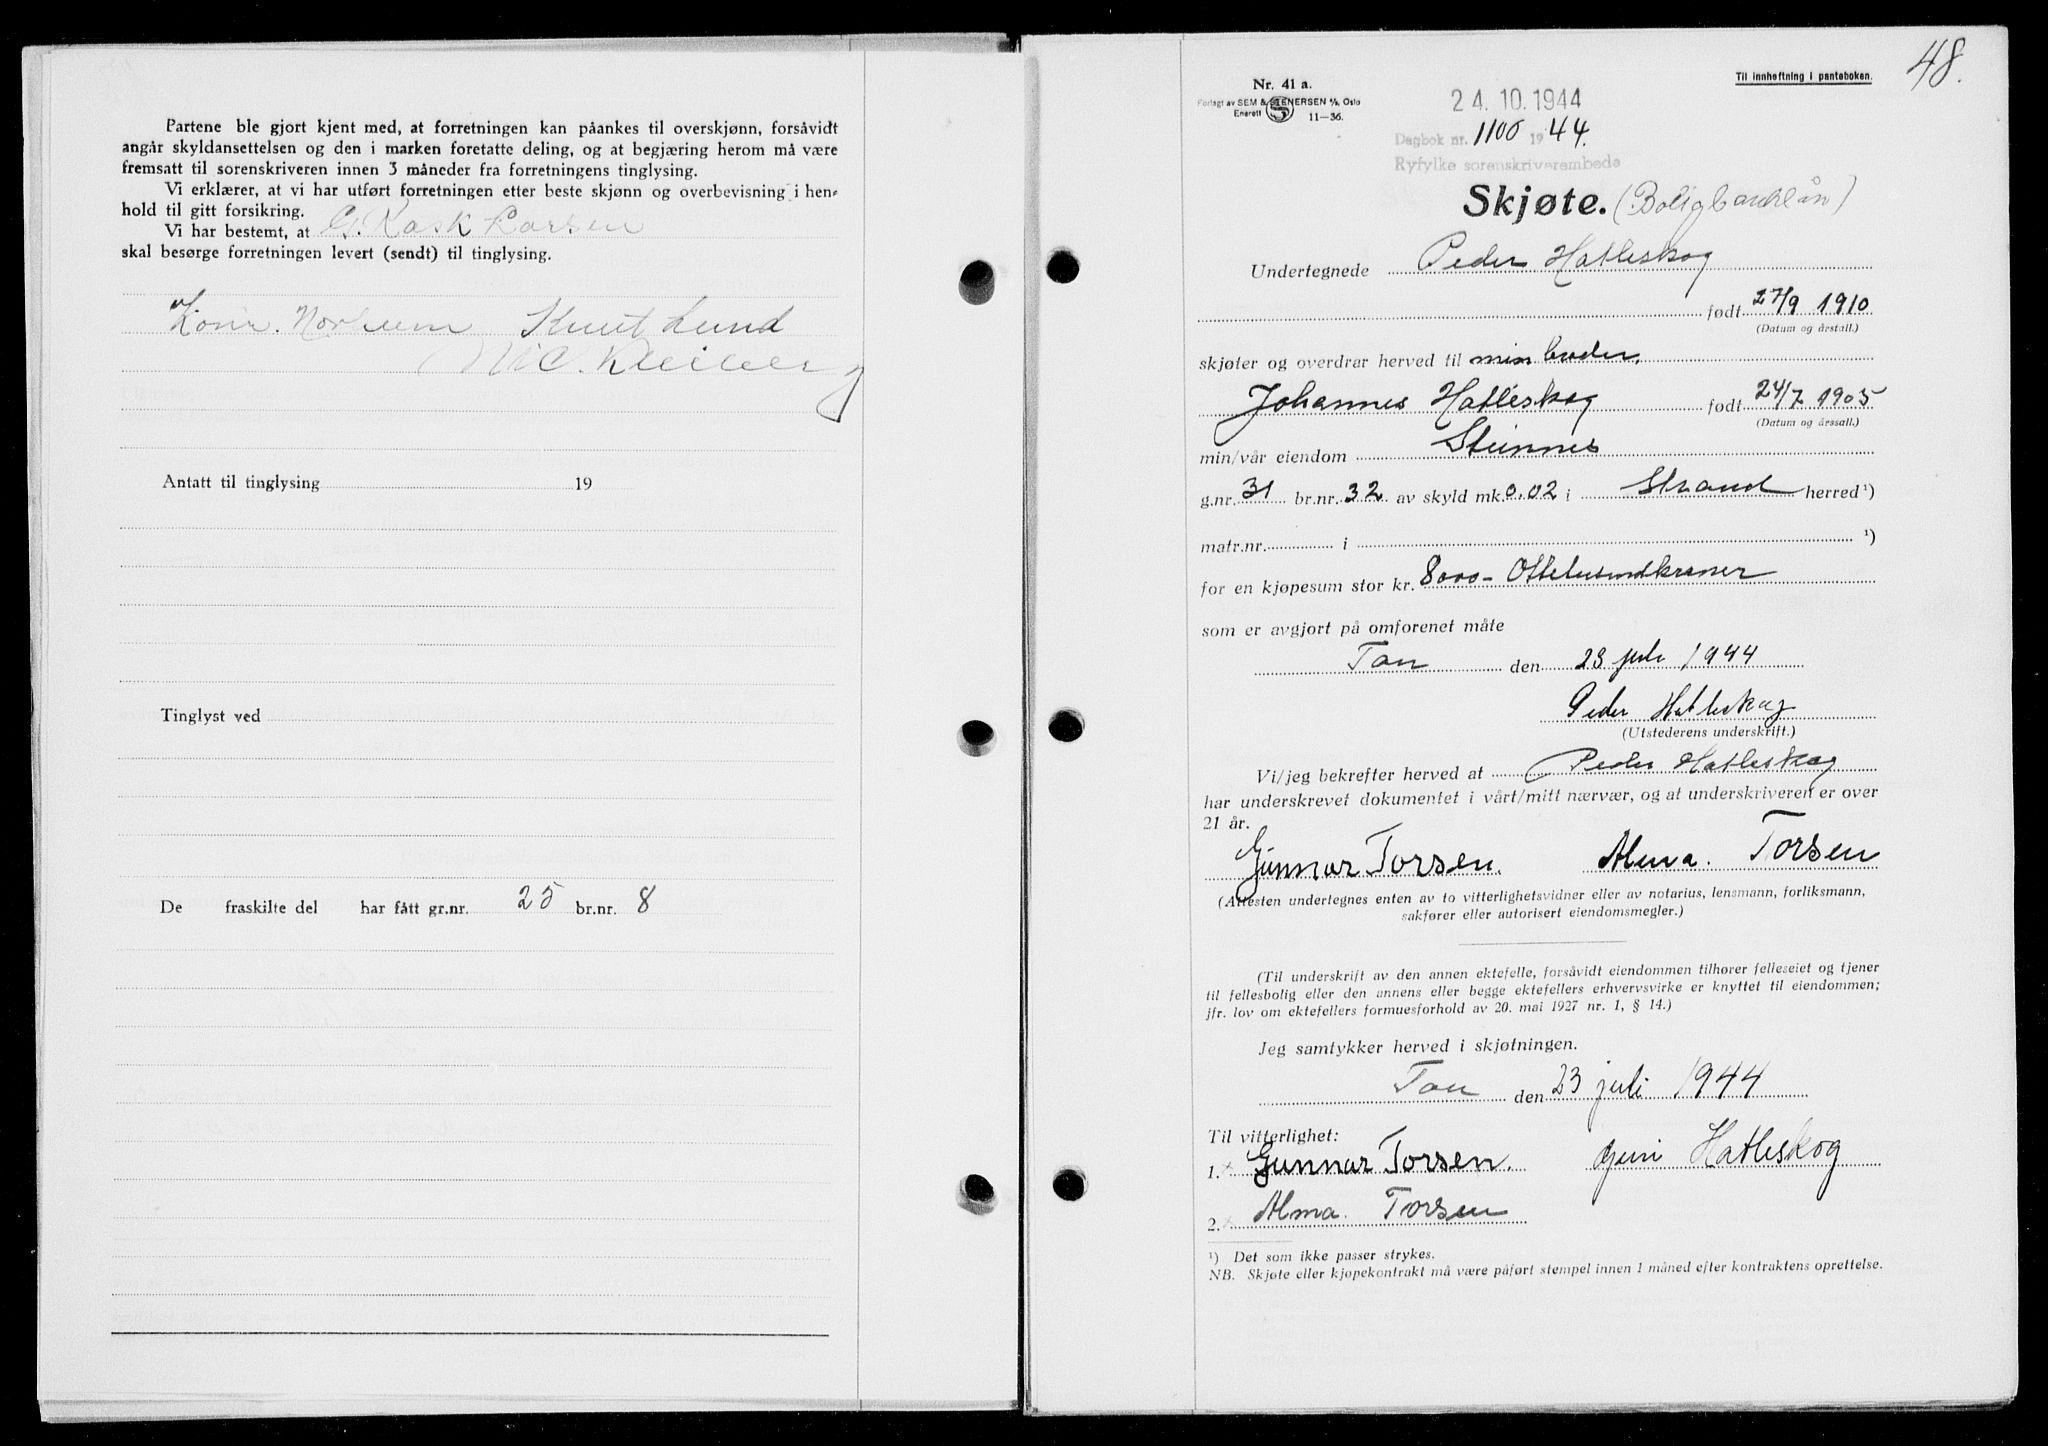 Partene ble gjort kjent med, at forretningen kan påankes til overskjønn, forsåvidt
angår skyldansettelsen og den i marken foretatte deling, og at begjæring herom må være
fremsatt til sorenskriveren innen 3 måneder fra forretningens tinglysing.
Vi erklærer, at vi har utført forretningen etter beste skjønn og overbevisning i hen-
hold til gitt forsikring.
Vi har bestemt, at G. Kask Larsen
skal besørge forretningen levert (sendt) til tinglysing.
Norheim Knut Lund
Antatt til tinglysing 19
Tinglyst ved
De fraskilte del har fått gr.nr. 25 br.nr. 8
48.
Til innheftning i panteboken.
Nr. 41 a.
Forlagt av SEM & STENERSEN A/S, Oslo
Enerett 11-36.
24.10.1944
Dagbok nr. 1100 1944.
Ryfylke sorenskriverembede
Skjøte. (Boligbanklån)
Undertegnede Peder Hatleskog
født 27/9 1910
(Datum og årstall.)
skjøter og overdrar herved til min broder,
Johannes Hatleskog født 24/7 1905
(Datum og årssall.)
min/vår eiendom Steinnes
g.nr. 31 br.nr. 32 av skyld mk. 0.02 i Strand herred ¹)
matr.nr. i ¹)
for en kjøpesum stor kr. 8000- Ottetusindkroner
som er avgjort på omforenet måte
Tau den 23 juli 1944
Peder Hatleskog
(Utstederens underskrift.)
Vi/jeg bekrefter herved at Peder Hatleskog
har underskrevet dokumentet i vårt/mitt nærvær, og at underskriveren er over
21 år.
Gunnar Torsen. Alma. Torsen
(Attesten undertegnes enten av to vitterlighetsvidner eller av notarius, lensmann, forliksmann,
sakfører eller autorisert eiendomsmegler.)
(Til underskrift av den annen ektefelle, forsåvidt eiendommen tilhører felleseiet og tjener
til fellesbolig eller den annens eller begge ektefellers erhvervsvirke er knyttet til eiendommen;
jfr. lov om ektefellers formuesforhold av 20. mai 1927 nr. 1, § 14.)
Jeg samtykker herved i skjøtningen.
Tau den 23 juli 1944
Til vitterlighet:
1. Gunnar Torsen. Hatleskog
2. Alma. Torsen
¹) Det som ikke passer strykes.
NB. Skjøte eller kjøpekontrakt må være påført stempel innen 1 måned efter kontraktens oprettelse.